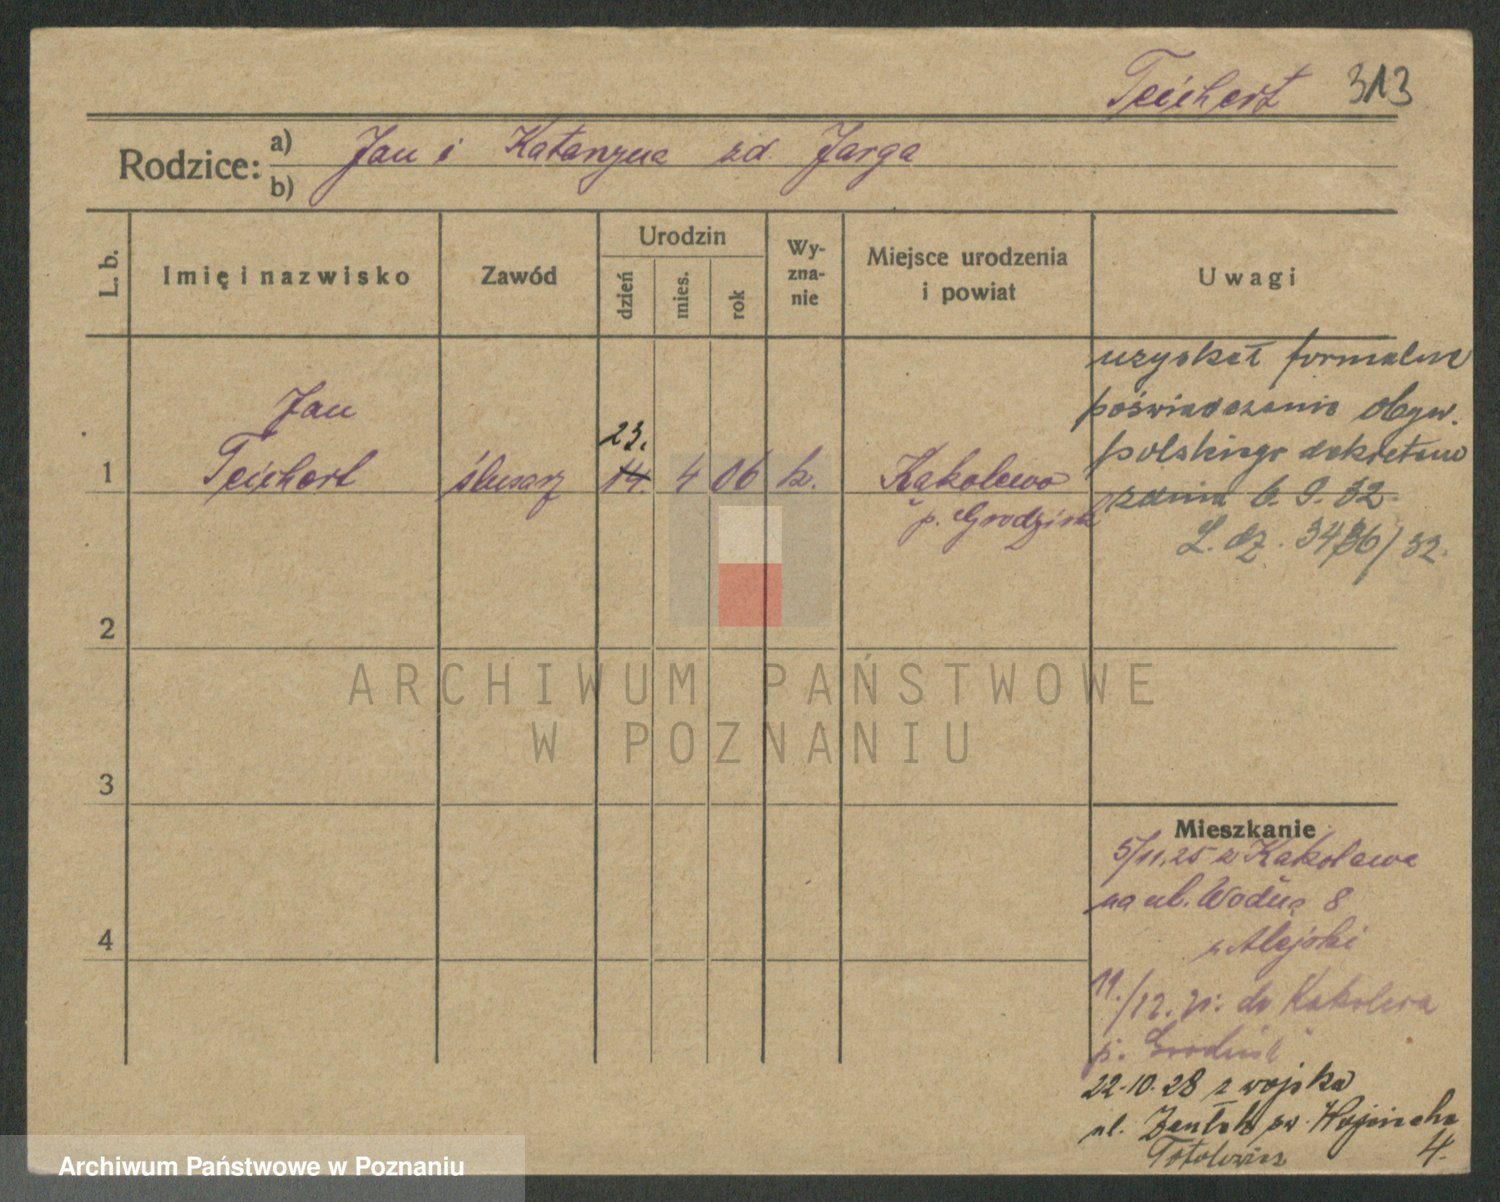 Teichert 313
Rodzice: a) Jan i Katarzyna zd. Jarga
b)
L. b.
Imię i nazwisko
Zawód
Urodzin
dzień
mies.
rok
Wy-
zna-
nie
Miejsce urodzenia
i powiat
Uwagi
1
Jan
Teichert
ślusarz
23.
14. 4 06 k.
Kąkolewo
p. Grodzisk
uzyskał formalne
poświadczenie obyw.
polskiego dekretem
z dnia 6. 9. 32
L. dz. 3436/32.
2
3
4
Mieszkanie
5/11.25 z Kąkolewa
na ul. Wodną 8
11/12. do Kąkolewa
p. Grodzisk
22-10.28 z wojska
ul. św. Wojciecha
4.
ARCHIWUM PAŃSTWOWE
W POZNANIU
Archiwum Państwowe w Poznaniu